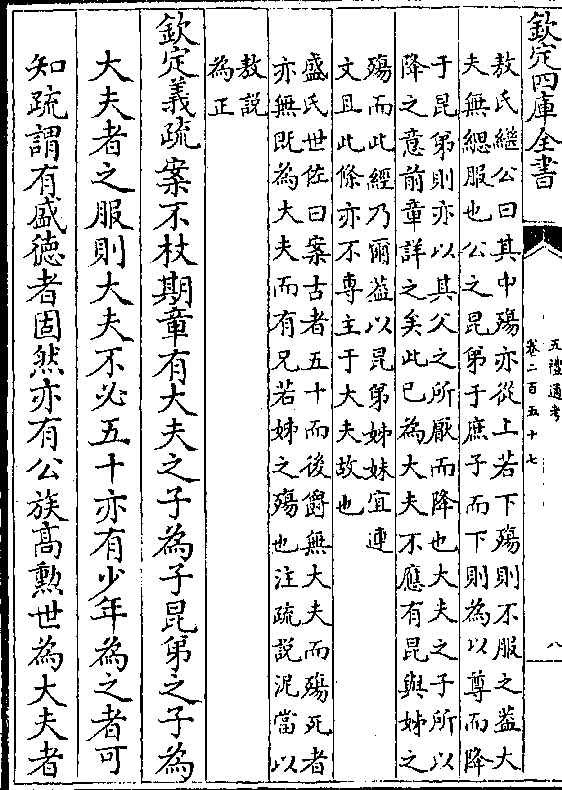 欽定四庫全書
五禮通考
卷二百五十七
八
敖氏繼公曰其中殤亦從上若下殤則不服之葢大
夫無緦服也公之昆弟于庶子而下則為以尊而降
于昆弟則亦以其父之所厭而降也大夫之子所以
降之意前章詳之矣此已為大夫不應有昆與姊之
殤而此經乃爾葢以昆弟姊妹宜連
文且此條亦不專主于大夫故也
盛氏世佐曰案古者五十而後爵無大夫而殤死者
亦無既為大夫而有兄若姊之殤也注疏說泥當以
敖說
為正
欽定義疏案不杖期章有大夫之子為子昆弟之子為
大夫者之服則大夫不必五十亦有少年為之者可
知疏謂有盛德者固然亦有公族髙勲世為大夫者